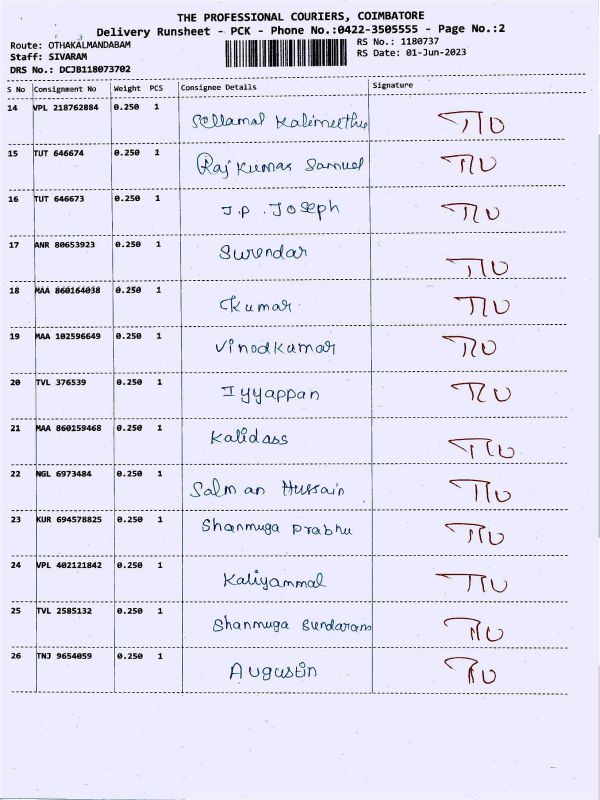 THE PROFESSIONAL COURIERS, COIMBATORE
Delivery Runsheet - PCK - Phone No.:0422-3505555 - Page No.:2
Route: OTHAKALMANDABAM RS No.: 1180737
Staff: SIVARAM RS Date: 01-Jun-2023
DRS No.: DCJB118073702
S No Consignment No Weight PCS Consignee Details Signature
14 VPL 218762884 0.250 1 Sellamal Kalimeethu
15 TUT 646674 0.250 1 Raj Kumar Samuel
16 TUT 646673 0.250 1 J.P. Joseph
17 ANR 80653923 0.250 1 Surendar
18 MAA 860164038 0.250 1 Kumar
19 MAA 102596649 0.250 1 Vinodkumar
20 TVL 376539 0.250 1 Iyyappan
21 MAA 860159468 0.250 1 Kalidass
22 NGL 6973484 0.250 1 Salman Hussain
23 KUR 694578825 0.250 1 Shanmuga Prabhu
24 VPL 402121842 0.250 1 Kaliyammal
25 TVL 2585132 0.250 1 Shanmuga Sundaram
26 TNJ 9654059 0.250 1 Augustin